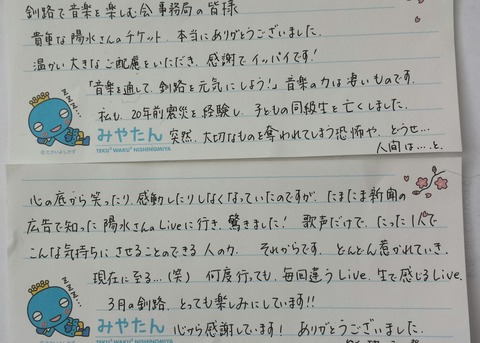 釧路で音楽を楽しむ会 事務局の皆様
貴重な陽水さんのチケット、本当にありがとうございました。
温かい大きなご配慮をいただき、感謝でイッパイです!
「音楽を通して、釧路を元気にしよう!」音楽の力は凄いものです。
私も、20年前震災を経験し、子どもの同級生を亡くしました。
ZZZ...
突然、大切なものを奪われてしまう恐怖や、どうせ…
みやたん
©たかいよしかず
TEKU² WAKU² NISHINOMIYA
人間は…、と。
心の底から笑ったり、感動したりしなくなっていたのですが、たまたま新聞の
広告で知った陽水さんのLiveに行き、驚きました! 歌声だけで、たった1人で
こんな気持ちにさせることのできる人の力。それからです。どんどん惹かれていき、
ZZZ...
現在に至る…(笑) 何度行っても、毎回違うLive、生で感じるLive。
3月の釧路、とっても楽しみにしています!!
みやたん
心から感謝しています! ありがとうございました。
©たかいよしかず
TEKU² WAKU² NISHINOMIYA